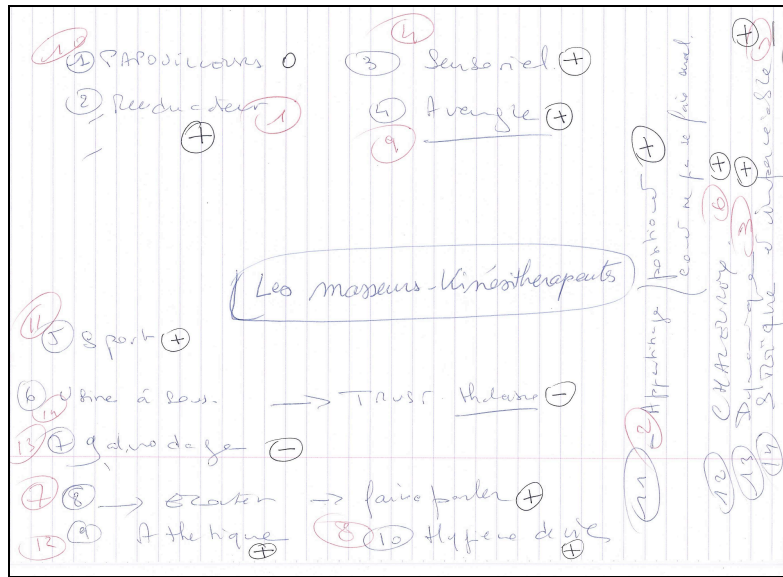 10 ① PAPOUILLEURS 0
② Reeducateur 1 +
4
③ Sensoriel. +
④ Aveugle +
9
Les masseurs-kinésithérapeutes
⑤ Sport +
⑥ Usine à sous. → TRUST +
14
13 ⑦ -
7 ⑧ → Ecouter → faire parler +
12 ⑨ Athletique +
8 ⑩ Hygiene de vie +
⑪ 2 Apprentissage / positions +
/ Court ne pas se faire mal.
⑫ CHALEUREUX. 6 +
⑬ Dynamique 3 +
⑭ Stoïque et 5 +